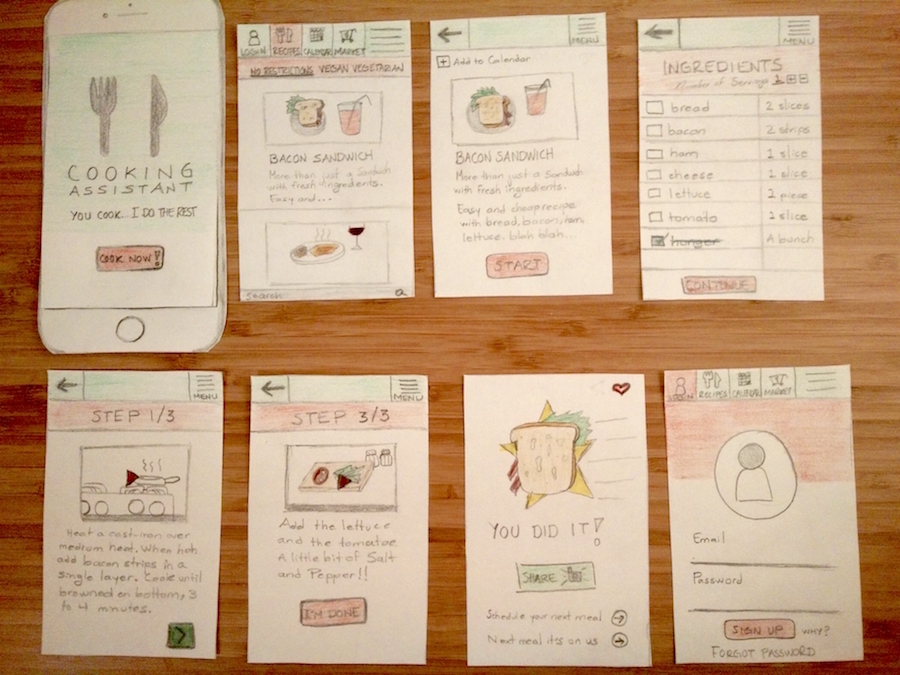 COOKING
ASSISTANT
YOU COOK... I DO THE REST
COOK NOW!
LOGIN RECIPES CALENDAR MARKET
NO RESTRICTIONS VEGAN VEGETARIAN
BACON SANDWICH
More than just a Sandwich
with fresh ingredients.
Easy and...
Search
MENU
+ Add to Calendar
BACON SANDWICH
More than just a Sandwich
with fresh ingredients.
Easy and cheap recipe
with bread, bacon, ham,
lettuce. blah blah...
START
MENU
INGREDIENTS
Number of Servings 1
bread 2 slices
bacon 2 strips
ham 1 slice
cheese 1 slice
lettuce 2 piece
tomato 2 slice
hunger A bunch
CONTINUE
MENU
STEP 1/3
Heat a cast-iron over
medium heat. When hot
add bacon strips in a
single layer. Cook until
browned on bottom, 3
to 4 minutes.
MENU
STEP 3/3
Add the lettuce
and the tomatoe
A little bit of Salt
and Pepper!!
I'M DONE
YOU DID IT!
SHARE
Schedule your next meal
Next meal its on us
LOGIN RECIPES CALENDAR MARKET
Email
Password
SIGN UP WHY?
FORGOT PASSWORD